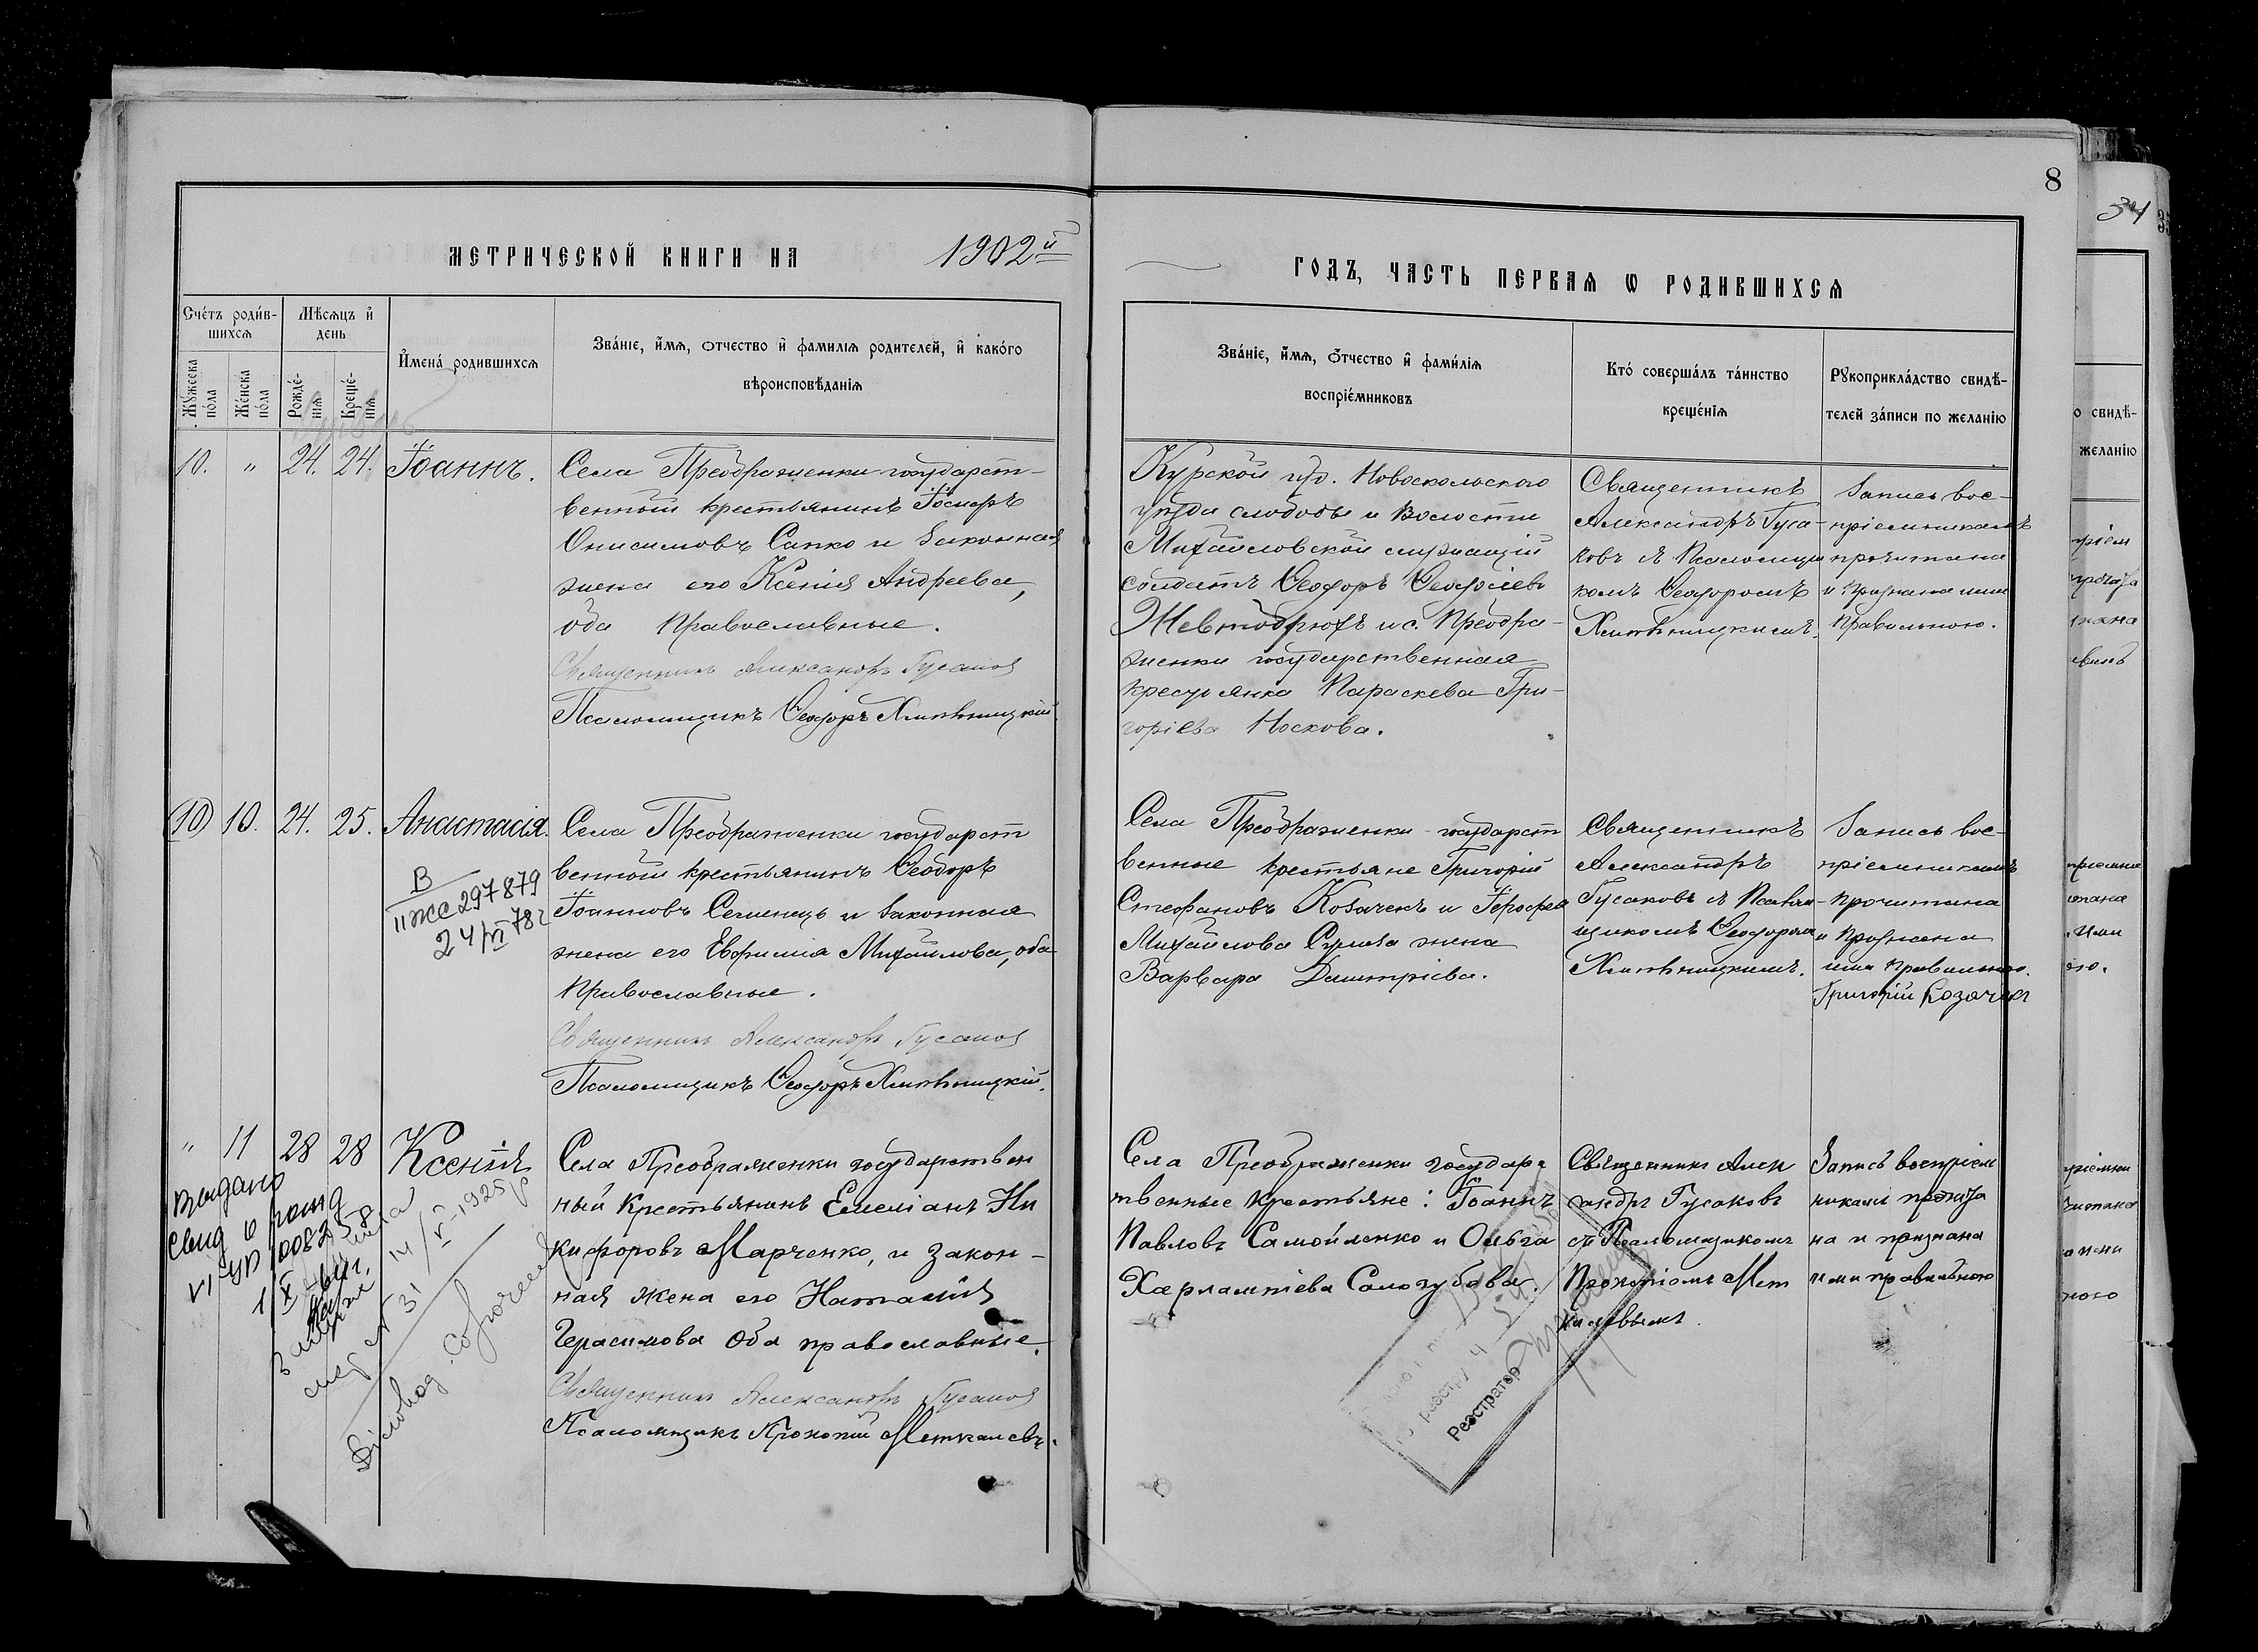 8
34
МЕТРИЧЕСКОЙ КНИГИ НА 1902й
ГОДЪ, ЧАСТЬ ПЕРВАЯ Ѡ РОДИВШИХСЯ
Сче́тъ роди́в-
шихся
Мѣсяцъ и҆
день
Му́жеска
по́ла
Же́нска
по́ла
Рожде́-
нія
Креще́-
нія
И҆мена́ родившихся
Зва́ніе, и҆мя, отчество и҆ фамилія родителей, и҆ како́го
вѣроисповѣ́данія
Зва́ніе, и҆мя, о҆тчество и҆ фами́лія
воспріе́мниковъ
Кто́ соверша́лъ та́инство
креще́нія
Рꙋкоприкла́дство свидѣ́-
телей за́писи по желанію
10. " 24. 24. Іоаннъ.
Села Преображенки государст-
венный крестьянинъ Іосифъ
Онисимовъ Сапко и законная
жена его Ксенія Андреева,
оба православные.
Священникъ Александръ Гусаковъ
Псаломщикъ Ѳеодоръ Хмѣльницкій
Курской губ. Новоскольского
уѣзда слободы и волости
Михайловской
солдатъ Ѳеодоръ
и с. Преобра-
женки государственная
крестьянка Параскева Гри-
горіева Носкова.
Священникъ
Александръ Гуса-
ковъ с Псаломщи
комъ Ѳеодоромъ
Хмѣльницкимъ.
Запись вос-
пріемникамъ
прочитана
и признана ими
правильною.
10 10. 24. 25. Анастасія.
В
II ЖС 297879
24/VI 78г
Села Преображенки государст
венный крестьянинъ Ѳеодоръ
Іоанновъ Семенецъ и законная
жена его Евфимія Михайлова, оба
православные.
Священникъ Александръ Гусаковъ
Псаломщикъ Ѳеодоръ Хмѣльницкій.
Села Преображенки государст
венные крестьяне Григорій
Стефановъ Козаченъ и
Михайлова жена
Варвара Димитріева.
Священникъ
Александръ
Гусаковъ с Псалом-
щикомъ Ѳеодоромъ
Хмѣльницкимъ.
Запись вос-
пріемникамъ
прочитана
и признана
ими правильною.
Григорій Козачек
" 11 28 28 Ксенія
Выдано
свид о рожд
VI УР 1008258
1/X
31 14/V-1925р
Діловод.
Села Преображенки государствен
ный крестьянинъ Емеліанъ Ни
кифоровъ Марченко, и закон-
ная жена его Наталія
Герасимова оба православные.
Священникъ Александръ Гусаковъ
Псаломщикъ Прокопій Меткалевъ.
Села Преображенки государс
твенные крестьяне: Іоаннъ
Павловъ Самойленко и Ольга
Харлампіева Солозубова.
Священникъ Алек
сандръ Гусаковъ
съ Псаломщикомъ
Прокопіемъ Мет
калевымъ.
Запись воспріем
никами прочита
на и признана
ими правильною
реєстру Ч
Реєстратор
о свидѣ-
желанію